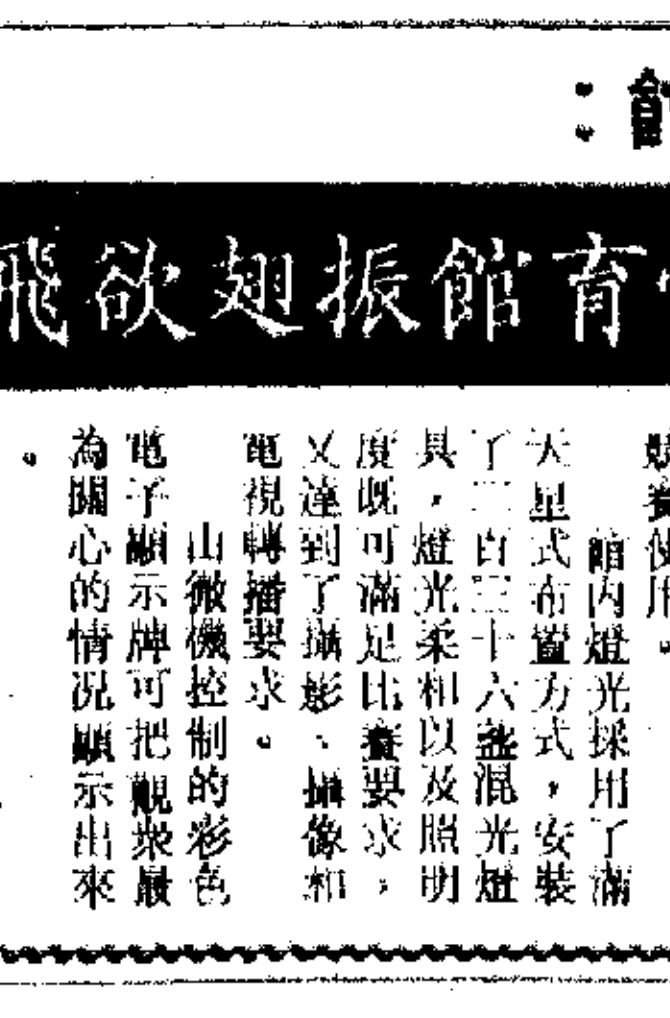 育館振翅欲飛
競賽使用。
館内燈光採用了滿
天星式布置方式，安裝
了二百三十六盞混光燈
具，燈光柔和以及照明
度既可滿足比賽要求，
又達到了攝影、攝像和
電視轉播要求。
由微機控制的彩色
電子顯示牌可把觀衆最
為關心的情況顯示出來
。